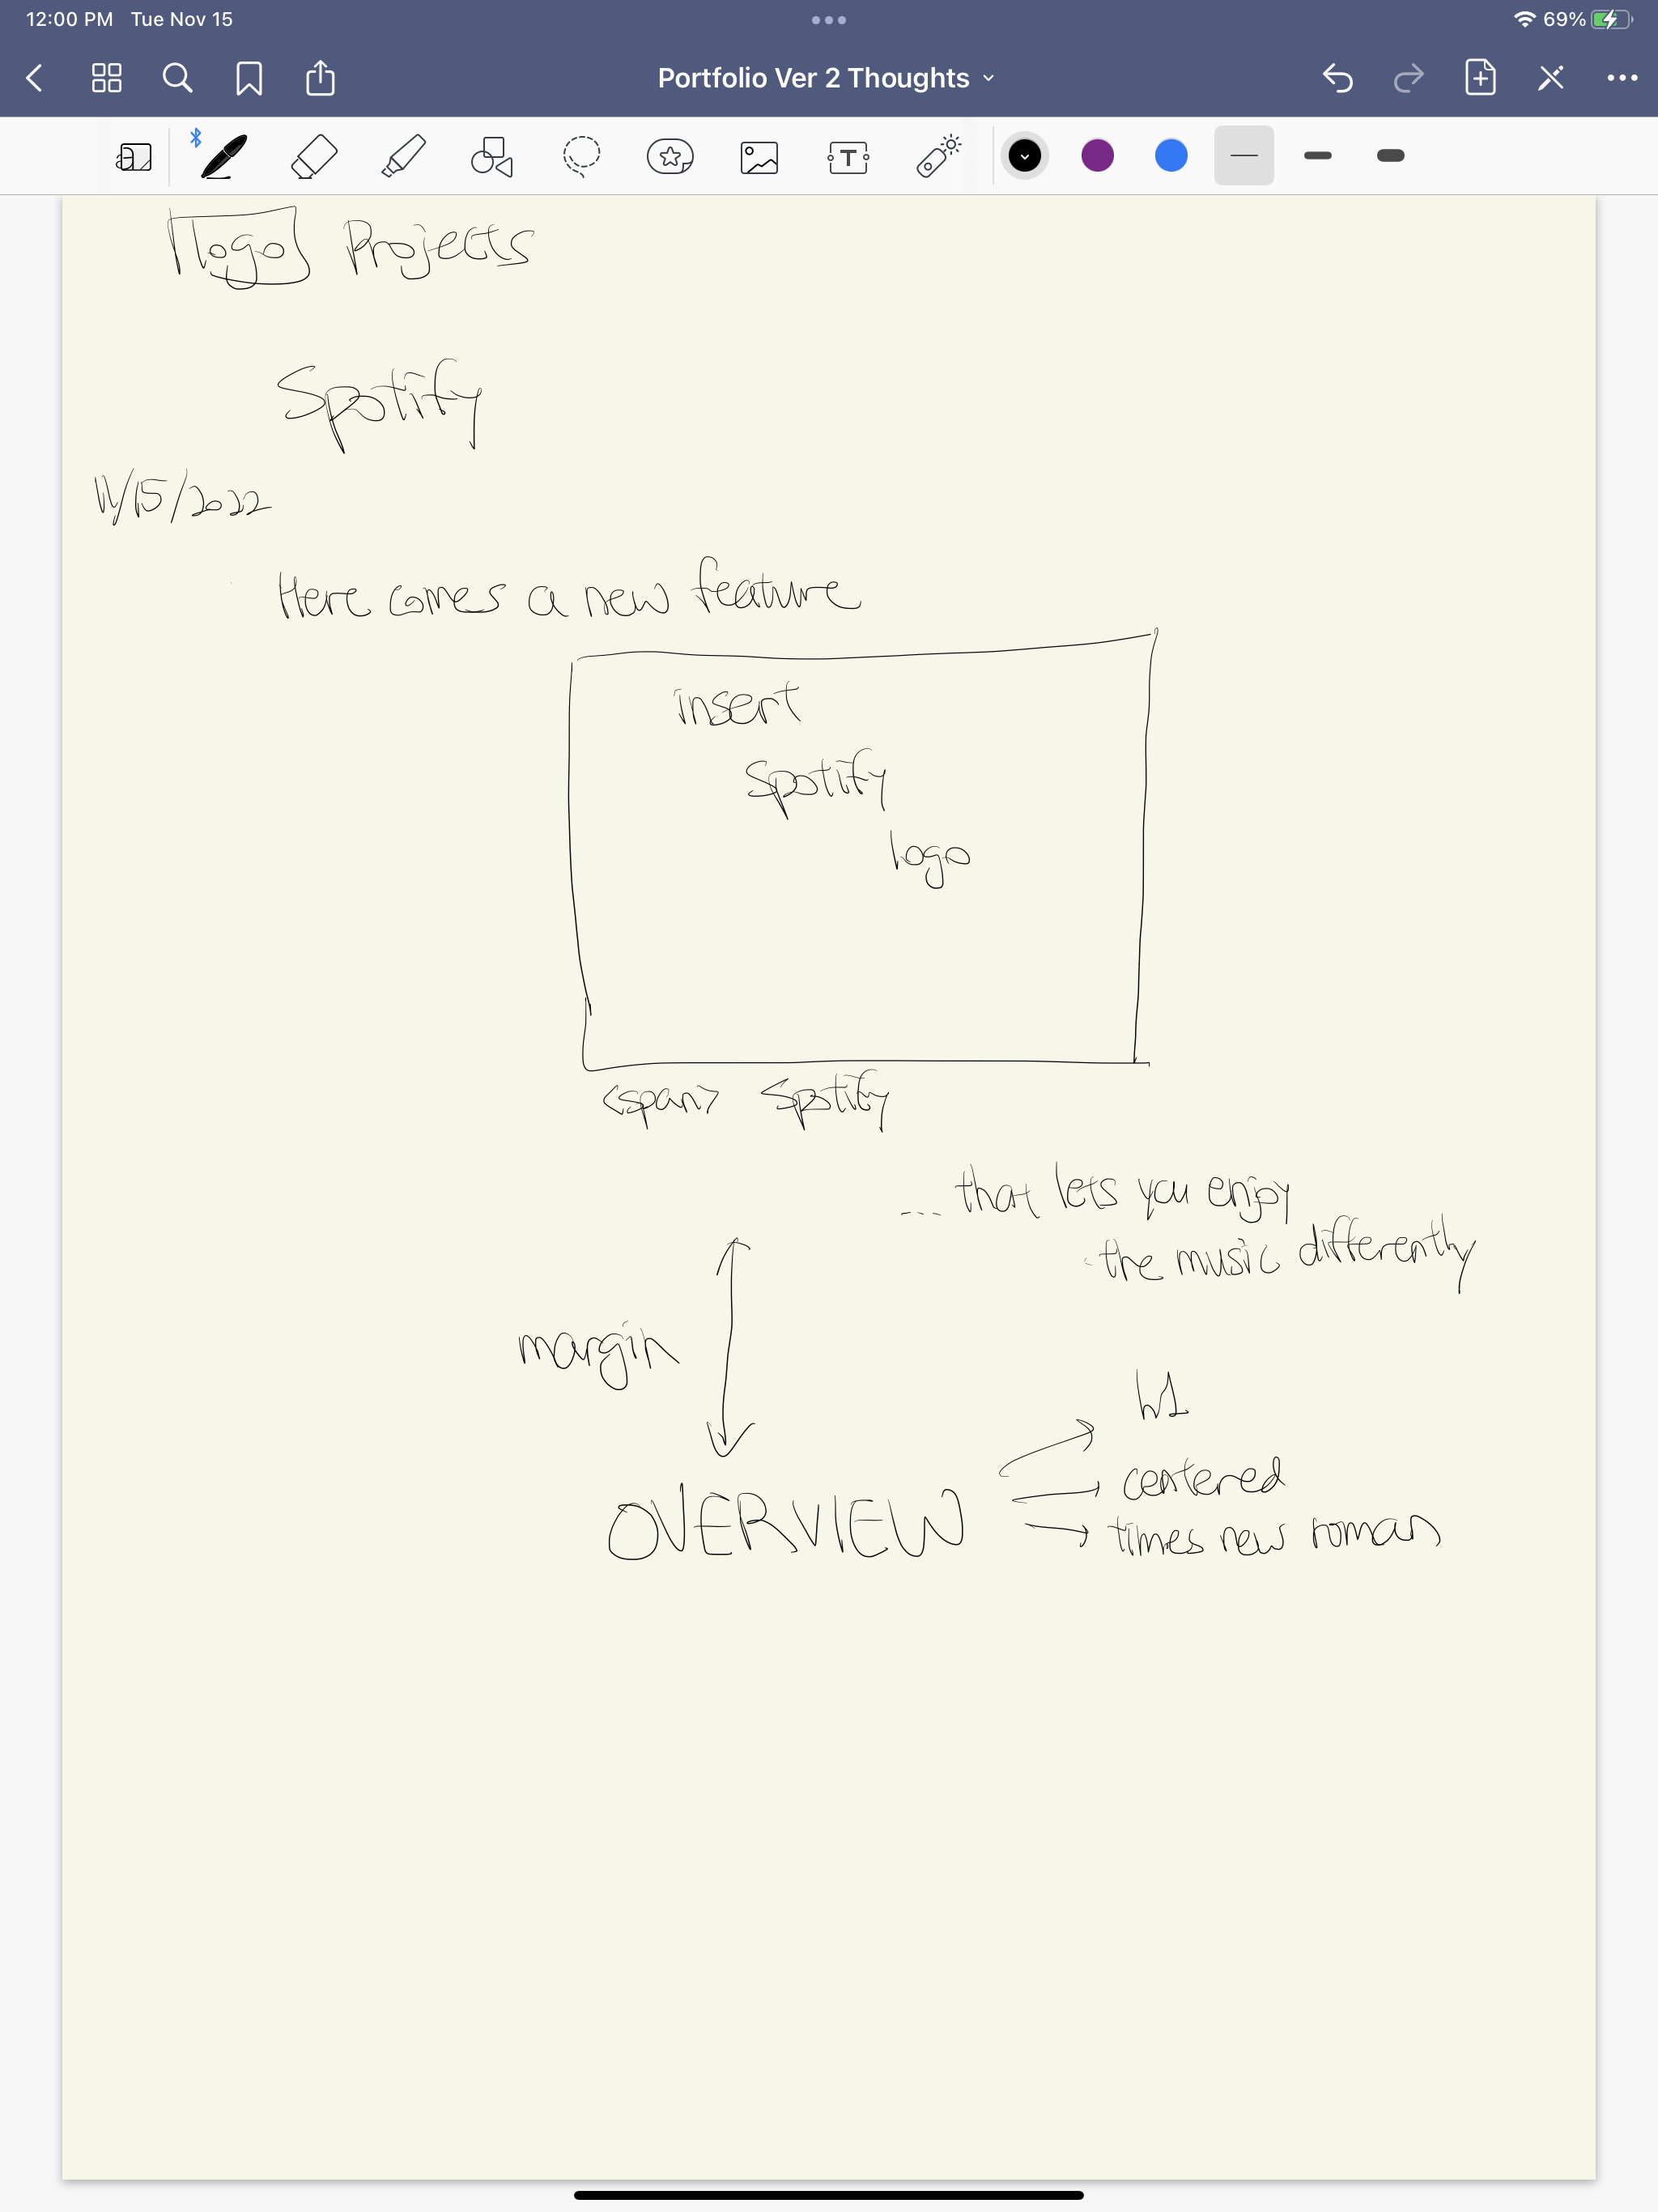 12:00 PM Tue Nov 15
69%
Portfolio Ver 2 Thoughts
logo Projects
Spotify
11/15/2022
Here comes a new feature
insert
Spotify
logo
<span> Spotify
... that lets you enjoy
the music differently
margin
h1
centered
OVERVIEW
times new roman